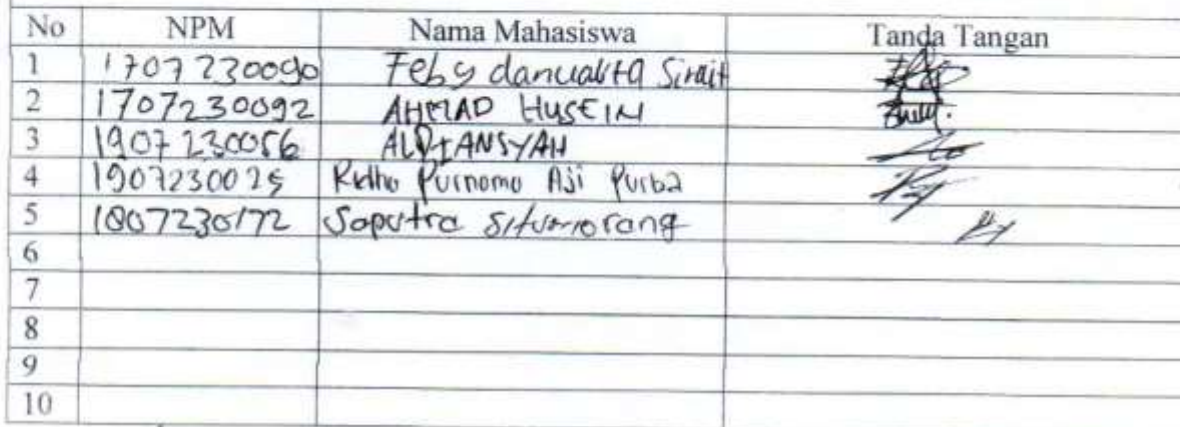 No NPM Nama Mahasiswa Tanda Tangan
1 1707230090 Feby danualita Sirait
2 1707230092 AHMAD HUSEIN
3 1907230056 ALDIANSYAH
4 1907230025 Ridho Purnomo Aji Purba
5 1807230172 Saputra Situmorang
6
7
8
9
10